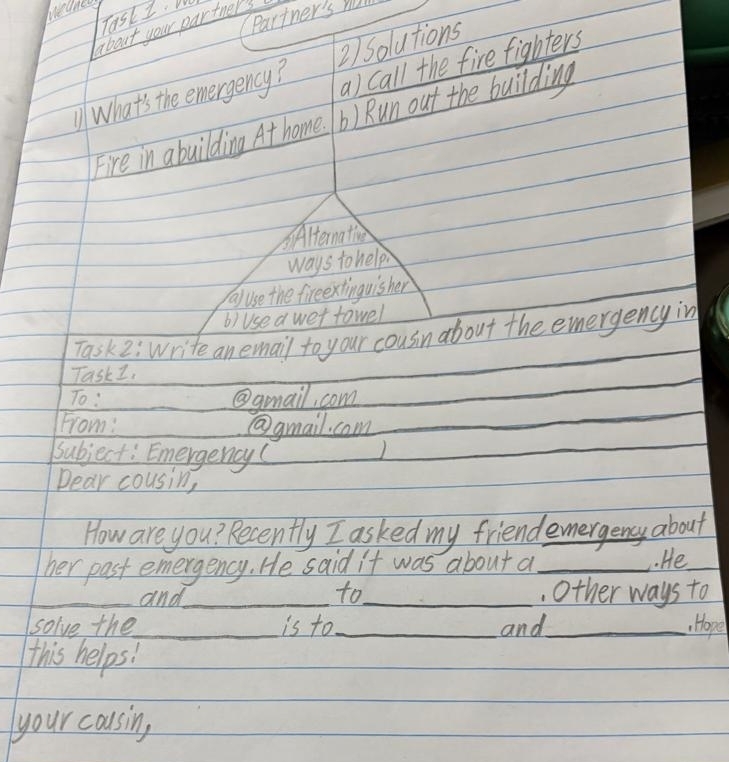 Task 1. 
about your partner's
(Partner's
1) What's the emergency?
Fire in a building At home.
2) Solutions
a) Call the fire fighters
b) Run out the building
3) Alternative
ways to help.
a) Use the fire extinguisher
b) Use a wet towel
Task 2: Write an email to your cousn about the emergency in
Task 1.
To: @gmail.com
From: @gmail.com
Subject: Emergency ( )
Dear cousin,
How are you? Recently I asked my friend emergency about
her past emergency. He said it was about a ________. He
________ and ________ to ________. Other ways to
solve the ________ is to ________ and ________. Hope
this helps!
your cousin,